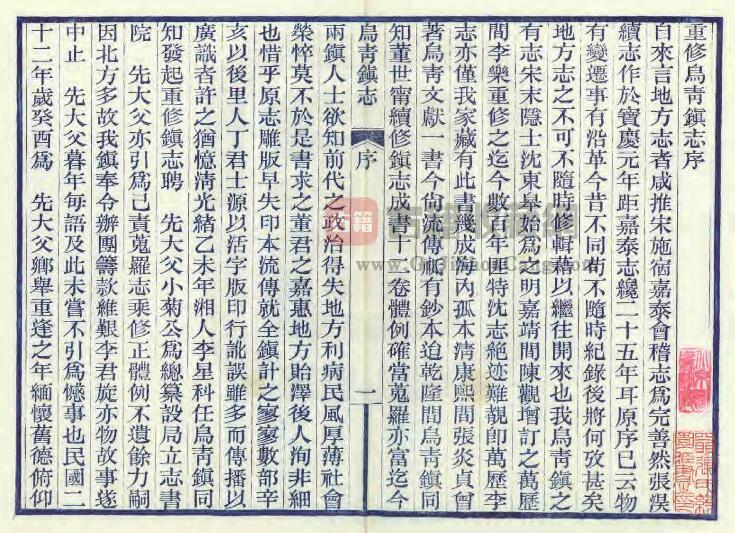 重修烏青鎮志序
自來言地方志者咸推宋施宿嘉泰會稽志為完善然張淏
續志作於寶慶元年距嘉泰志纔二十五年耳原序已云物
有變遷事有沿革今昔不同苟不隨時紀錄後將何攷甚矣
地方志之不可不隨時修輯藉以繼往開來也我烏青鎮之
有志宋末隱士沈東臯始為之明嘉靖間陳觀增訂之萬歷
間李樂重修之迄今數百年匪特沈志絕迹難覩卽萬歷李
志亦僅我家藏有此書幾成海內孤本清康熙間張炎貞曾
著烏青文獻一書今尙流傳祇有鈔本迨乾隆間烏青鎮同
知董世甯續修鎮志成書十二卷體例確當蒐羅亦富迄今
烏青鎮志
序
一
兩鎮人士欲知前代之政治得失地方利病民風厚薄社會
榮悴莫不於是書求之董君之嘉惠地方貽澤後人洵非細
也惜乎原志雕版早失印本流傳就全鎮計之寥寥數部辛
亥以後里人丁君士源以活字版印行訛誤雖多而傳播以
廣識者許之猶憶清光緒乙未年湘人李星科任烏青鎮同
知發起重修鎮志聘 先大父小菊公為總纂設局立志書
院 先大父亦引為己責蒐羅志乘修正體例不遺餘力嗣
因北方多故我鎮奉令辦團籌款維艱李君旋亦物故事遂
中止 先大父暮年每語及此未嘗不引為憾事也民國二
十二年歲癸酉為 先大父鄉舉重逢之年緬懷舊德俯仰
古籍收藏網
www.GuJiShouCang.com